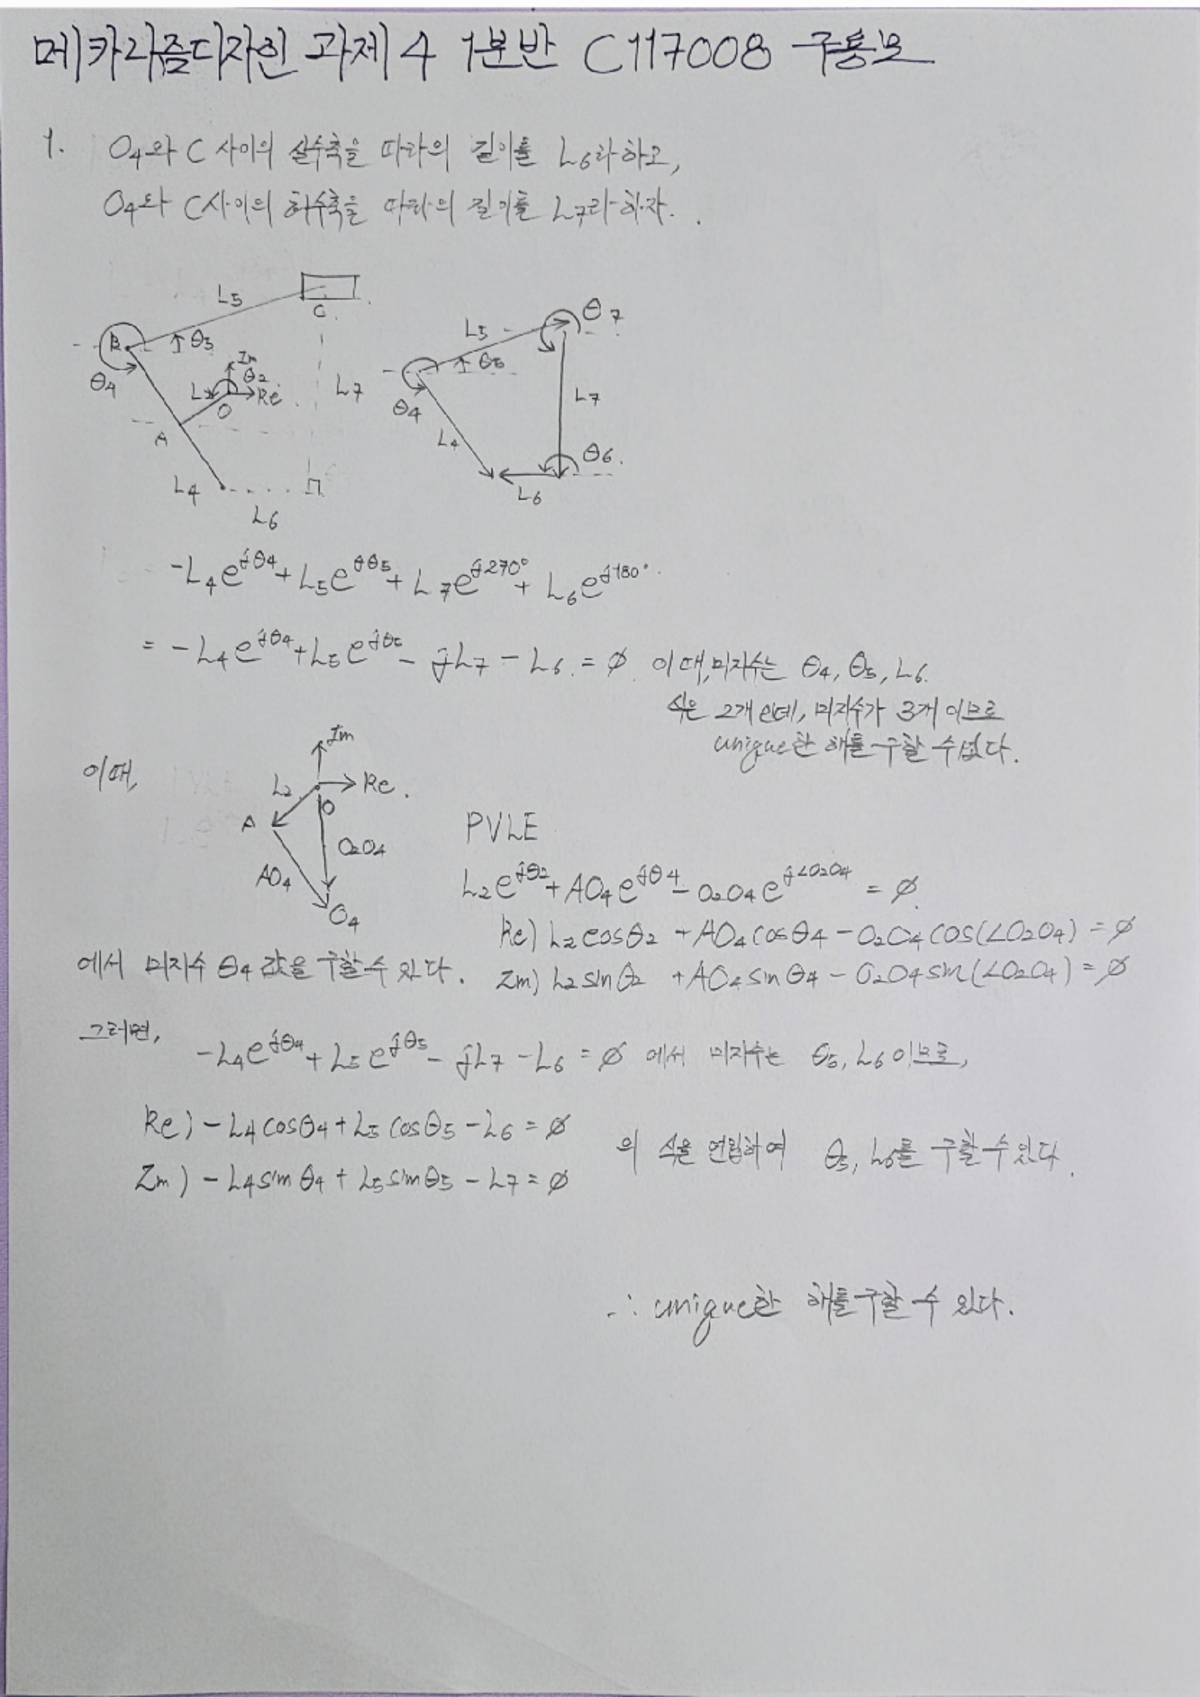 메카니즘디자인 과제 4 1분반 C117008 구동모
1. O4와 C 사이의 실수축을 따라의 길이를 L6라하고,
O4와 C사이의 허수축을 따라의 길이를 L7라하자.
L5 C
B θ5 Im
θ4 L2 θ2 Re L7
O
A
L4
L6
L5 θ7
θ5
θ4 L7
L4 θ6
L6
-L4e^jθ4 + L5e^jθ5 + L7e^j270° + L6e^j180°
= -L4e^jθ4 + L5e^jθ5 - jL7 - L6 = ∅ 이때,미지수는 θ4, θ5, L6.
식은 2개인데, 미지수가 3개 이므로
unique한 해를 구할 수 없다.
이때,
Im
L2 Re
A O
O2O4
AO4
O4
PVLE
L2e^jθ2 + AO4e^jθ4 - O2O4e^j∠O2O4 = ∅
Re) L2cosθ2 + AO4cosθ4 - O2O4cos(∠O2O4) = ∅
에서 미지수 θ4 값을 구할 수 있다. Im) L2sinθ2 + AO4sinθ4 - O2O4sin(∠O2O4) = ∅
그러면,
-L4e^jθ4 + L5e^jθ5 - jL7 - L6 = ∅ 에서 미지수는 θ5, L6 이므로,
Re) -L4cosθ4 + L5cosθ5 - L6 = ∅
의 식을 연립하여 θ5, L6를 구할 수 있다.
Im) -L4sinθ4 + L5sinθ5 - L7 = ∅
∴ unique한 해를 구할 수 있다.